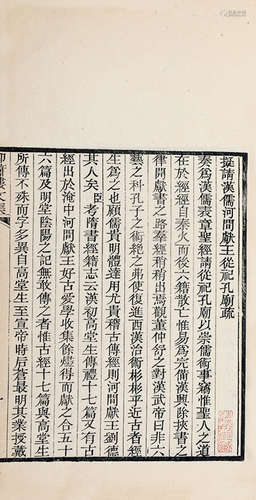 擬請漢儒河間獻王從祀孔廟疏
奏爲漢儒表章聖經請從祀孔廟以崇儒術事竊惟聖人之道
在於經經自秦火而後六籍散亡惟易爲完備漢興除挾書之
律開獻書之路羣經稍稍出焉觀董仲舒之對漢武帝曰非六
藝之科孔子之術絕之弗使復進西漢儒術彬彬乎近古者經
生爲之也顧儒貴明體達用尤貴稽古傳經則河間獻王劉德
其人矣臣考隋書經籍志云漢初高堂生傳禮十七篇又有古
經出於淹中河間獻王好古愛學收集餘燼得而獻之合五十
六篇及明堂陰陽之記無敢傳之者惟古經十七篇與高堂生
所傳不殊而字多異自高堂生至宣帝時后蒼最明其業授戴